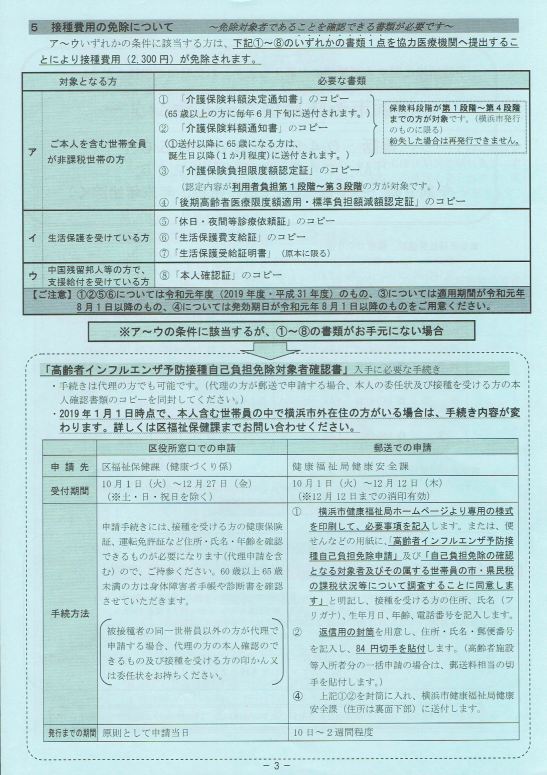 ５　接種費用の免除について　～免除対象者であることを確認できる書類が必要です～
ア～ウいずれかの条件に該当する方は、下記①～⑧のいずれかの書類１点を協力医療機関へ提出するこ
とにより接種費用（2,300円）が免除されます。
対象となる方
必要な書類
ア
ご本人を含む世帯全員
が非課税世帯の方
①　「介護保険料額決定通知書」のコピー
（65歳以上の方に毎年６月下旬に送付されます。）
②　「介護保険料額通知書」のコピー
（①送付以降に65歳になる方は、
誕生日以降（１か月程度）に送付されます。）
保険料段階が第１段階～第４段階
までの方が対象です。（横浜市発行
のものに限る）
紛失した場合は再発行できません。
③　「介護保険負担限度額認定証」のコピー
（認定内容が利用者負担第１段階～第３段階の方が対象です。）
④　「後期高齢者医療限度額適用・標準負担額減額認定証」のコピー
イ
生活保護を受けている方
⑤　「休日・夜間等診療依頼証」のコピー
⑥　「生活保護費支給証」のコピー
⑦　「生活保護受給証明書」（原本に限る）
ウ
中国残留邦人等の方で、
支援給付を受けている方
⑧　「本人確認証」のコピー
【ご注意】①②⑤⑥については令和元年度（2019年度・平成31年度）のもの、③については適用期間が令和元年
８月１日以降のもの、④については発効期日が令和元年８月１日以降のものをご用意ください。
※ア～ウの条件に該当するが、①～⑧の書類がお手元にない場合
「高齢者インフルエンザ予防接種自己負担免除対象者確認書」入手に必要な手続き
・手続きは代理の方でも可能です。（代理の方が郵送で申請する場合、本人の委任状及び接種を受ける方の本
人確認書類のコピーを同封してください。）
・2019年１月１日時点で、本人含む世帯員の中で横浜市外在住の方がいる場合は、手続き内容が変
わります。詳しくは区福祉保健課までお問い合わせください。
区役所窓口での申請
郵送での申請
申請先
区福祉保健課（健康づくり係）
健康福祉局健康安全課
受付期間
10月１日（火）～12月27日（金）
（※土・日・祝日を除く）
10月１日（火）～12月12日（木）
（※12月12日までの消印有効）
手続方法
申請手続きには、接種を受ける方の健康保険
証、運転免許証など住所・氏名・年齢を確認
できるものが必要になります（代理申請を含
む）ので、ご持参ください。60歳以上65歳
未満の方は身体障害者手帳や診断書を確認
させていただきます。
被接種者の同一世帯員以外の方が代理で
申請する場合、代理の方の本人確認ので
きるもの及び接種を受ける方の印かん又
は委任状をお持ちください。
①　横浜市健康福祉局ホームページより専用の様式
を印刷して、必要事項を記入します。または、便
せんなどの用紙に、「高齢者インフルエンザ予防接
種自己負担免除申請」及び「自己負担免除の確認
となる対象者及びその属する世帯員の市・県民税
の課税状況等について調査することに同意しま
す」と明記し、接種を受ける方の住所、氏名（フ
リガナ）、生年月日、年齢、電話番号を記入します。
②　返信用の封筒を用意し、住所・氏名・郵便番号
を記入し、84円切手を貼付します。（高齢者施設
等入所者分の一括申請の場合は、郵送料担当の切
手を貼付します。）
④　上記①②を封筒に入れ、横浜市健康福祉局健康
安全課（住所は裏面下部）に送付します。
発行までの期間
原則として申請当日
10日～２週間程度
－３－